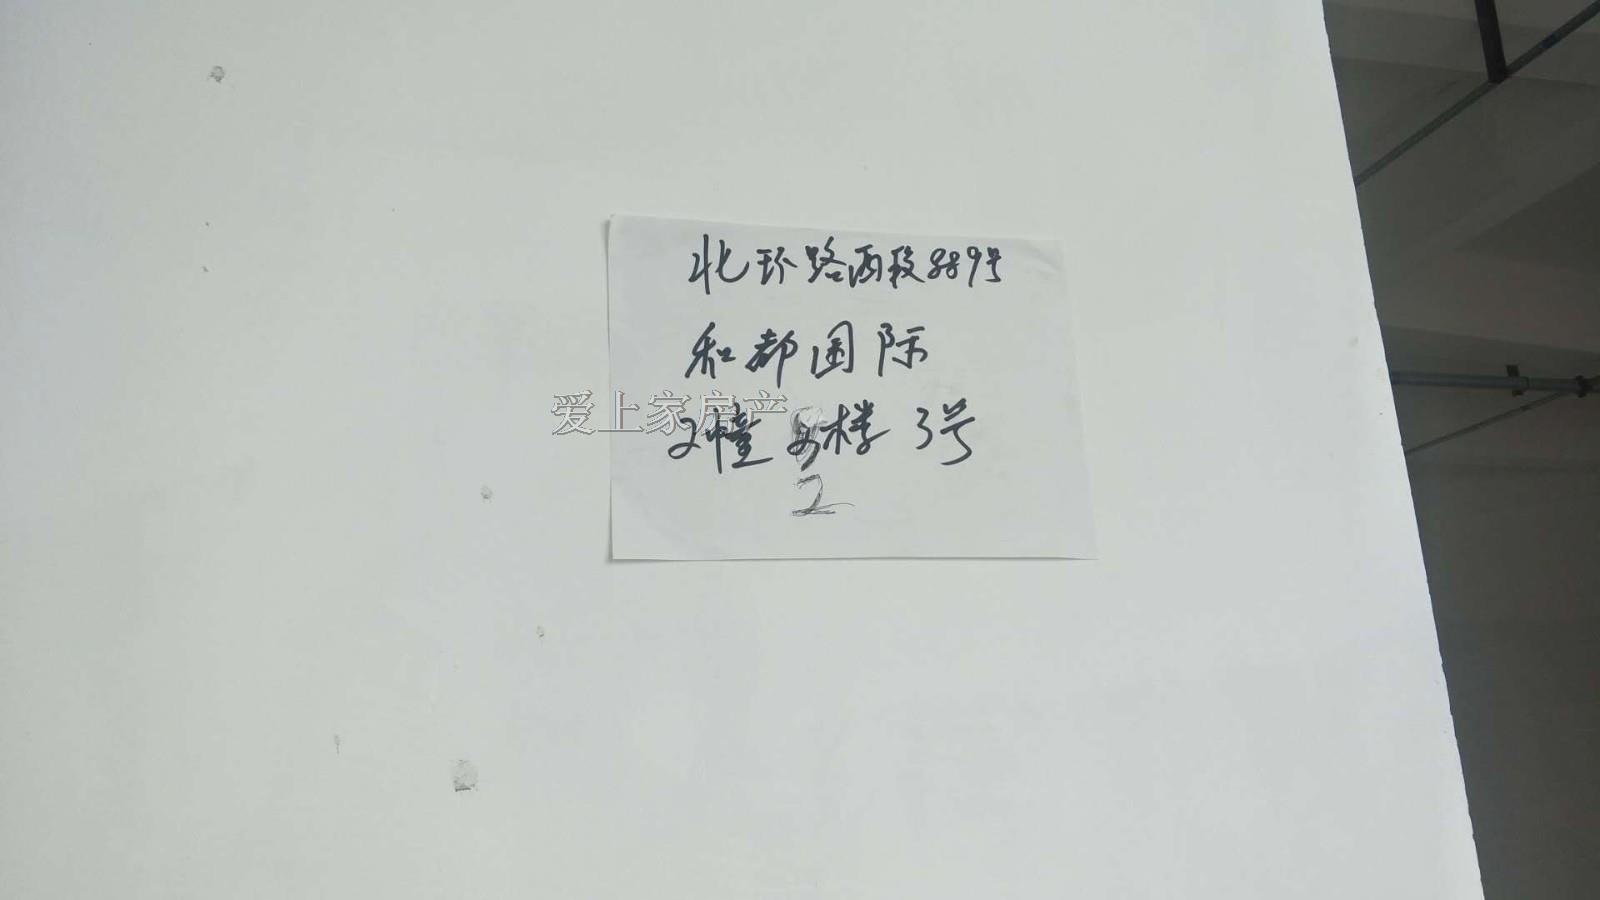 北环路西段889号
和都国际
爱上家房产
2幢 楼 3号
2